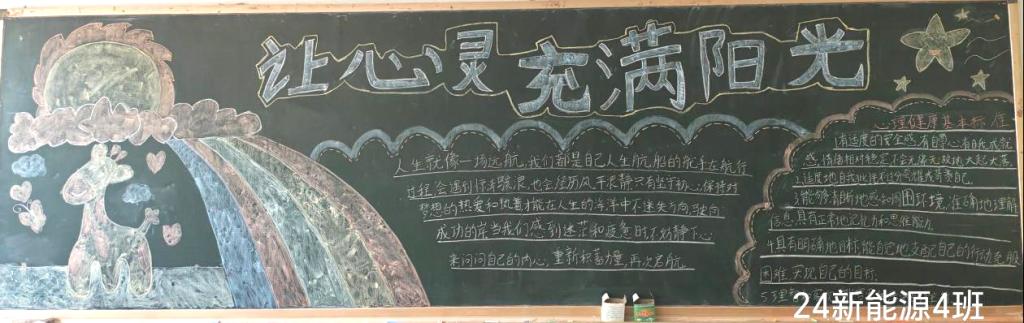 让心灵充满阳光
人生就像一场远航,我们都是自己人生航船的舵手在航行
过程会遇到惊涛骇浪也会经历风平浪静只有坚守初心保持对
梦想的热爱和执着才能在人生的海洋中不迷失方向驶向
成功的岸当我们感到迷茫和疲惫时不妨静下心
来问问自己的内心,重新积蓄力量,再次启航。
心理健康基本标准
有适度的安全感,有自尊心,有成就
感,情绪相对稳定
适度地自我批评不过分
能够清晰地感知周围环境,准确地理解
信息,具有正常地记忆力和思维能力
4具有明确地目标,能自己地支配自己的行动克服
困难,实现自己的目标
24新能源4班